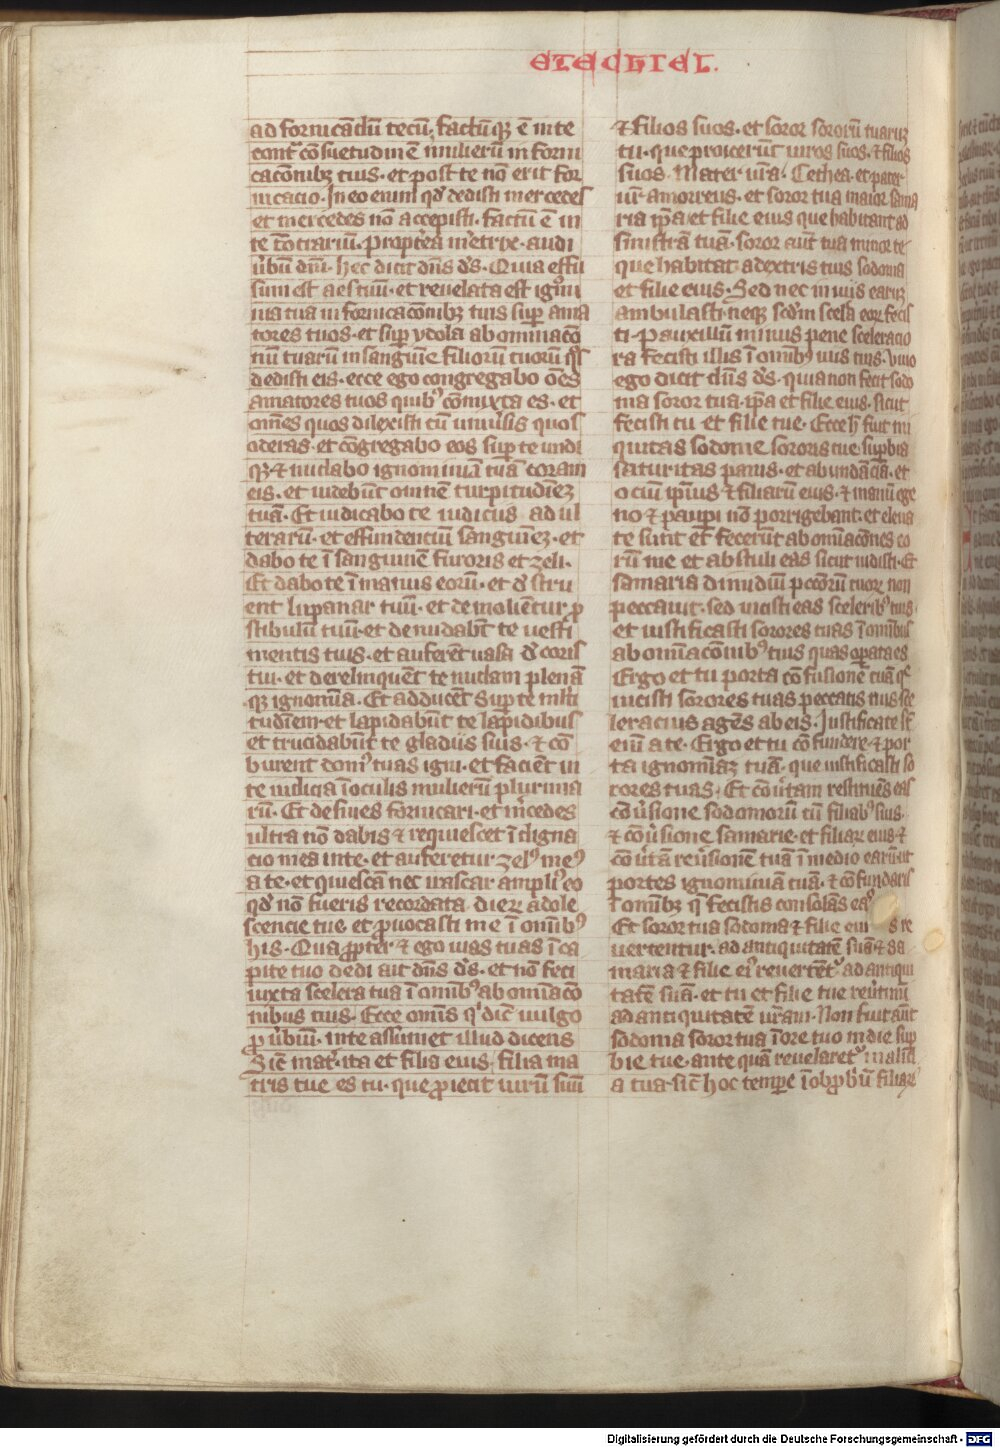 ezechiel.
ad fornicādū tecū. factūqꝫ ē in te
cont̄ cōsuetudinē mulierū in forni
cacōibꝫ tuis. et post te nō erit for
nicacio. In eo enim qd̛ dedisti mercedes
et mercedes nō accepisti. factū ē in
te cōtrariū. propterea meretrix audi
ūbū dn̄i. hec dicit dn̄s d̛s. Quia effu
sum est aes tuū. et reuelata est ignōi
nia tua in fornicacōibꝫ tuis sup̱ ama
tores tuos. et sup̱ ydola abominacō
nū tuarū in sanguine filiorū tuorū qͦs
dedisti eis. ecce ego congregabo oēs
amatores tuos quibꝰ cōmixta es. et
om̄es quos dilexisti cū uniūsis quos
oderas. et cōgregabo eos sup̱ te undi
qꝫ ⁊ nudabo ignominiā tuā coram
eis. et uidebūt omnē turpitudinēꝫ
tuā. Et iudicabo te iudiciis adul
terarū. et effundenciū sanguinēꝫ. et
dabo te ī sanguinē furoris et zeli.
Et dabo te ī manus eorū. et d̛stru
ent lupanar tuū. et demolientur p̱
stibulū tuū. et denudabūt te uesti
mentis tuis. et auferēt uasa d̛coris
tui. et derelinquent te nudam plenā
qꝫ ignomīa. Et adducent sup̱ te mlti
tudinem et lapidabūt te lapidibus
et trucidabūt te gladiis suis. ⁊ cō
burent domꝰ tuas igni. et faciēt in
te iudicia ī oculis mulierū plurima
rū. Et desines fornicari. et m̄cedes
ultra nō dabis ⁊ requiescet ī digna
cio mea in te. et auferetur zelꝰ meꝰ
a te. et quiescā nec irascar ampliꝰ eo
qd̛ nō fueris recordata dierꝝ adole
scencie tue. et ꝓuocasti me ī omībꝰ
his. Quaꝓpter ⁊ ego uias tuas ī ca
pite tuo dedi ait dn̄s d̛s. et nō feci
iuxta scelera tua ī omībꝰ abominacō
nibus tuis. Ecce omīs q̛ dic̄ uulgo
ꝓūbiū. in te assumet illud dicens
Sic̄ mat̛. ita et filia eius. filia ma
tris tue es tu. que ꝓiecit uirū suū
⁊ filios suos. et soror sororū tuarꝝ
tu. que proiecerūt uiros suos. ⁊ filios
suos. Mater ur̄a. Cethea. et pater
ur̄ amorreus. et soror tua maior sama
ria ip̄a et filie eius que habitant ad
sinistrā tuā. soror aut̄ tua minor te
que habitat adextris tuis sodoma
et filie eius. Sed nec in uiis earꝝ
ambulasti. neqꝫ scdm scelera eorꝝ fecis
ti. pauxillū minus pene sceleracio
ra fecisti illis ī omībꝰ uiis tuis. Viuo
ego dicit dn̄s d̛s. quia non fecit sodo
ma soror tua. ip̄a et filie eius. sicut
fecisti tu et filie tue. Ecce h̄ fuit ini
quitas sodome sororis tue. sup̱bia
saturitas panis. et abundācia. et
ociū ip̄ius ⁊ filiarū eius. ⁊ manū ege
no ⁊ paup̱i nō porrigebant. et eleua
te sunt et fecerūt abominacōnes co
rā me et abstuli eas sicut uidisti. Et
samaria dimidiū peccatorū tuorꝝ non
peccauit. sed uicisti eas sceleribꝰ tuis
et iustificasti sorores tuas ī omībus
abominacōnibꝰ tuis quas operata es
Ergo et tu porta cōfusionē tuā qͥ
uicisti sorores tuas peccatis tuis sce
leracius agēs ab eis. Iustificate st̄
eni a te. Ergo et tu cōfundere ⁊ por
ta ignomīaꝫ tuā. que iustificasti so
rores tuas. Et conūtam restituens eas
cōūsione sodomorū cū filiabꝰ suis.
⁊ cōūsione samarie. et filiarꝝ eius ⁊
cōūtā reūsionē tuā ī medio earū ut
portes ignominiā tuā. ⁊ cōfundaris
ī omībꝫ q̄ fecistis consolās eas
Et soror tua sodoma ⁊ filie eius re
uertentur. ad antiquitatē suā ⁊ sa
maria ⁊ filie eiꝰ reuertētꝰ ad antiqui
tatē suā. et tu et filie tue reūtimi
ad antiquitatē ur̄am. Non fuit aut̄
sodoma soror tua ī ore tuo in die sup̱
bie tue. ante quā reuelaretꝰ malici
a tua. sic̄ hoc tempore ī obꝓbriū filiarꝝ
Digitalisierung gefördert durch die Deutsche Forschungsgemeinschaft - DFG